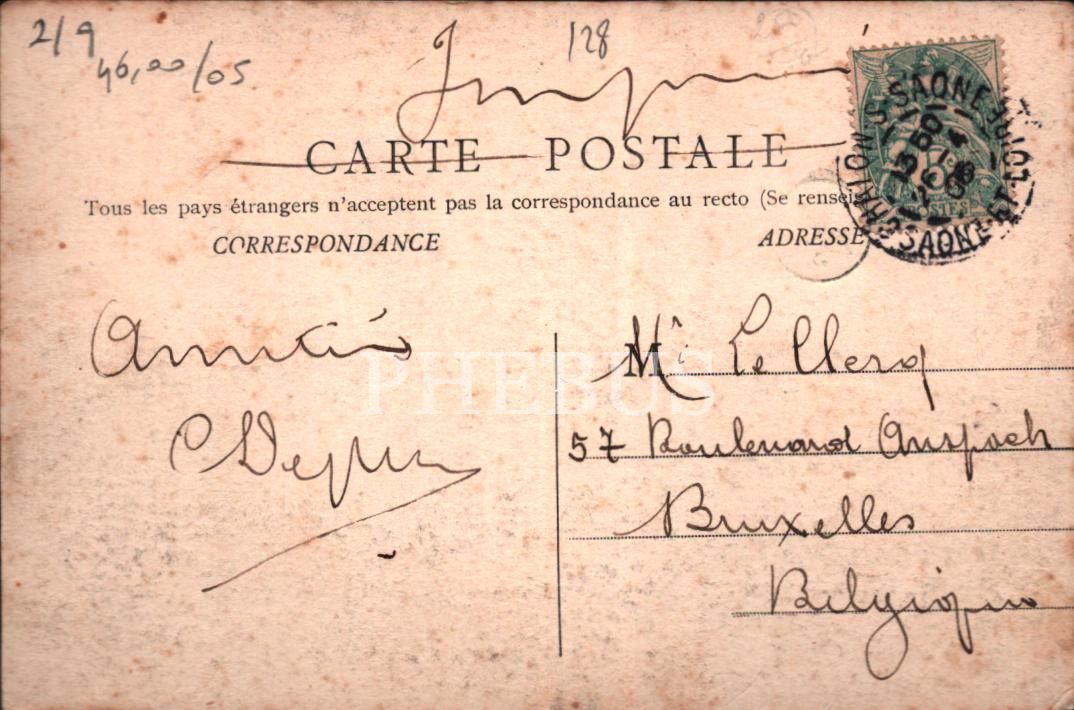 2/9
46,00/05
128
CARTE POSTALE
Tous les pays étrangers n'acceptent pas la correspondance au recto (Se rensei
CORRESPONDANCE
ADRESSE
CHALON S. SAONE SAONE-ET-LOIRE
POSTES
Amitiés
PHEBUS
M
Mr Le Clercq
57 Boulevard Anspach
Bruxelles
Belgique